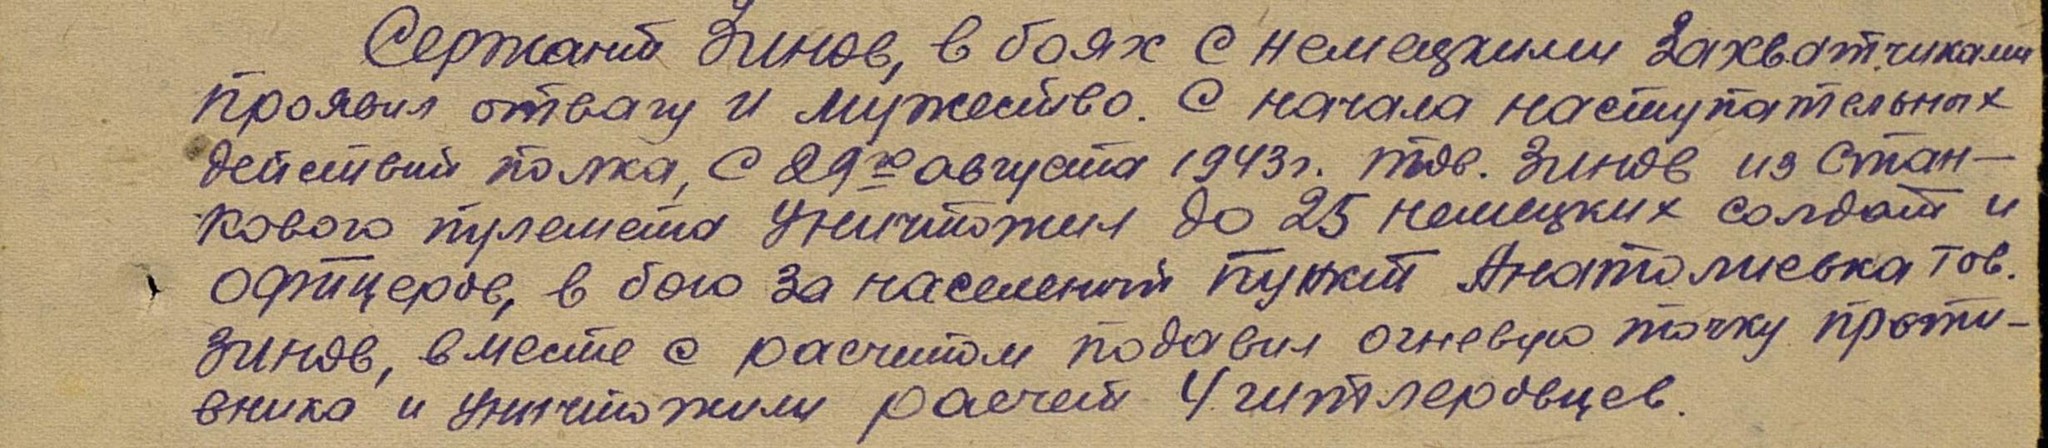 Сержант Зинов, в боях с немецкими захватчиками
проявил отвагу и мужество. С начала наступательных
действий полка, с 29го августа 1943г. тов. Зинов из стан-
кового пулемета уничтожил до 25 немецких солдат и
офицеров, в бою за населеный пункт Анатолиевка тов.
Зинов, вместе с расчетом подавил огневую точку проти-
вника и уничтожили расчет 4 гитлеровцев.